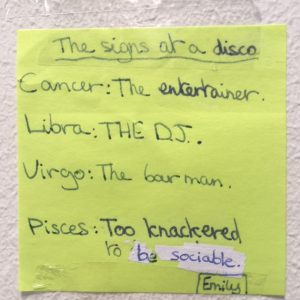 The signs at a disco
Cancer: The entertainer.
Libra: THE DJ.
Virgo: The bar man.
Pisces: Too knackered
to be sociable.
Emily